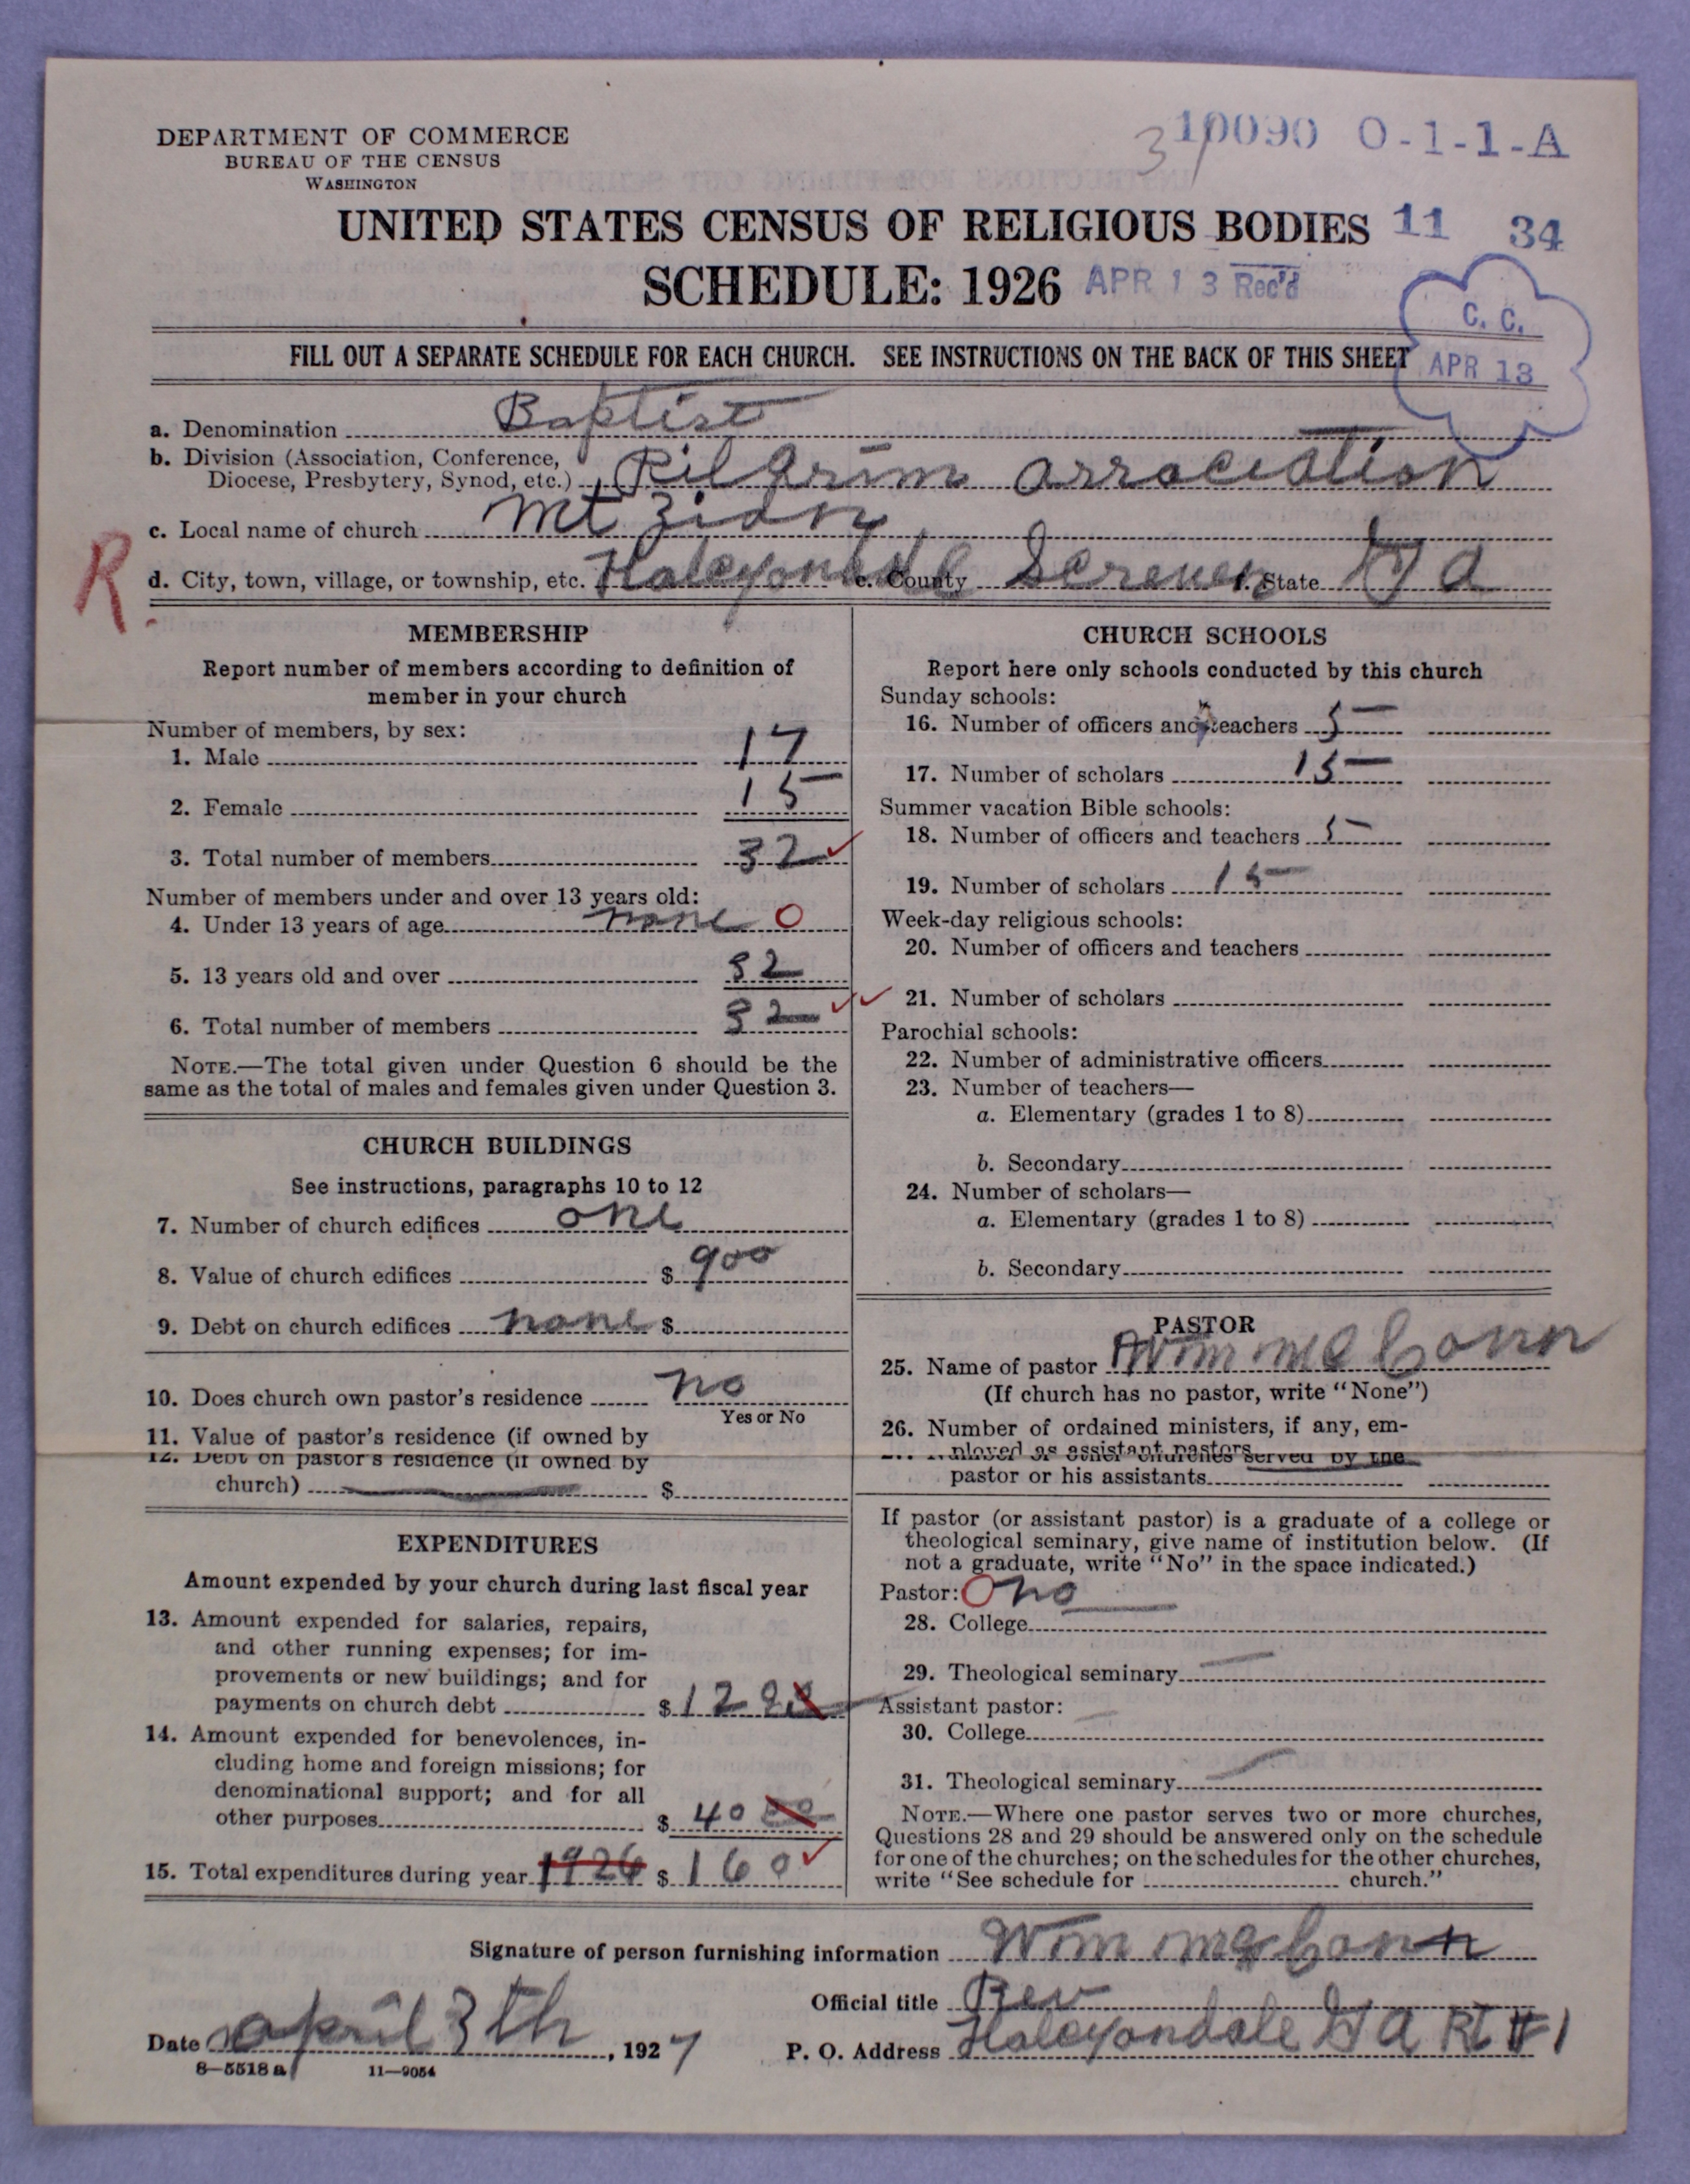 DEPARTMENT OF COMMERCE
BUREAU OF THE CENSUS
WASHINGTON
10090 O-1-1-A
UNITED STATES CENSUS OF RELIGIOUS BODIES 11 34
SCHEDULE: 1926 APR 13 Rec'd
C. C.
APR 13
FILL OUT A SEPARATE SCHEDULE FOR EACH CHURCH. SEE INSTRUCTIONS ON THE BACK OF THIS SHEET
a. Denomination Baptist
b. Division (Association, Conference,
Diocese, Presbytery, Synod, etc.) Pilgrim association
c. Local name of church Mt Zion
R
d. City, town, village, or township, etc. Halcyondale e. County Screven f. State Ga
MEMBERSHIP
Report number of members according to definition of
member in your church
Number of members, by sex:
1. Male 17
2. Female 15
3. Total number of members 32
Number of members under and over 13 years old:
4. Under 13 years of age none 0
5. 13 years old and over 32
6. Total number of members 32
NOTE.—The total given under Question 6 should be the
same as the total of males and females given under Question 3.
CHURCH BUILDINGS
See instructions, paragraphs 10 to 12
7. Number of church edifices one
8. Value of church edifices $ 900
9. Debt on church edifices none $
10. Does church own pastor's residence no
Yes or No
11. Value of pastor's residence (if owned by
12. Debt on pastor's residence (if owned by
church) $
EXPENDITURES
Amount expended by your church during last fiscal year
13. Amount expended for salaries, repairs,
and other running expenses; for im-
provements or new buildings; and for
payments on church debt $ 12
14. Amount expended for benevolences, in-
cluding home and foreign missions; for
denominational support; and for all
other purposes $ 40
15. Total expenditures during year 1926 $ 160
CHURCH SCHOOLS
Report here only schools conducted by this church
Sunday schools:
16. Number of officers and teachers 5
17. Number of scholars 15
Summer vacation Bible schools:
18. Number of officers and teachers 5
19. Number of scholars 15
Week-day religious schools:
20. Number of officers and teachers
21. Number of scholars
Parochial schools:
22. Number of administrative officers
23. Number of teachers—
a. Elementary (grades 1 to 8)
b. Secondary
24. Number of scholars—
a. Elementary (grades 1 to 8)
b. Secondary
PASTOR
25. Name of pastor Wm McConn
(If church has no pastor, write "None")
26. Number of ordained ministers, if any, em-
ployed as assistant pastors
churches served by the
pastor or his assistants
If pastor (or assistant pastor) is a graduate of a college or
theological seminary, give name of institution below. (If
not a graduate, write "No" in the space indicated.)
Pastor: O no
28. College
29. Theological seminary
Assistant pastor:
30. College
31. Theological seminary
NOTE.—Where one pastor serves two or more churches,
Questions 28 and 29 should be answered only on the schedule
for one of the churches; on the schedules for the other churches,
write "See schedule for church."
Signature of person furnishing information Wm McConn
Official title Rev
Date april 3th, 1927
P. O. Address Halcyondale Ga Rt #1
8—5518 a 11—9054